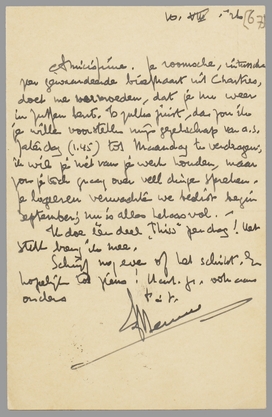 10. VIII . '26 (67)
Amicissime. Je roomsche, intusschen
zeer gewaardeerde briefkaart uit Chartres,
doet me vermoeden, dat je nu weer
in zijt. Is zulks juist, dan zou ik
je willen voorstellen mijn gezelschap van a.s.
Zaterdag (1.45) tot Maandag te verdragen.
Ik wil je niet van je werk houden, maar
zou je toch graag over veel dingen spreken.
Je logeren verwachten we eerst begin
September; nu is alles vol.
Ik doe een deel "Thijs" per dag! Het
stelt ik mee.
Schrijf nog even of het schikt. En
hopelijk tot ziens! Hart. gr. ook aan
onders
t. à t.